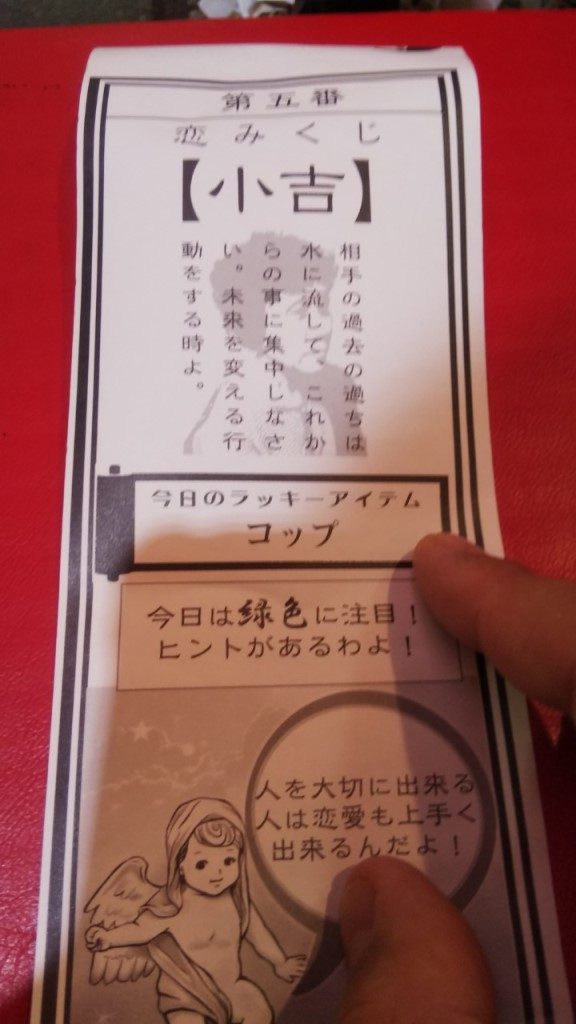 第五番
恋みくじ
【小吉】
相手の過去の過ちは
水に流して、これか
らの事に集中しなさ
い。未来を変える行
動をする時よ。
今日のラッキーアイテム
コップ
今日は緑色に注目！
ヒントがあるわよ！
人を大切に出来る
人は恋愛も上手く
出来るんだよ！